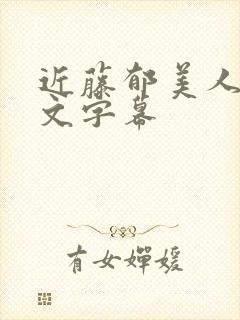 近藤郁美人
文字幕
有女婵媛